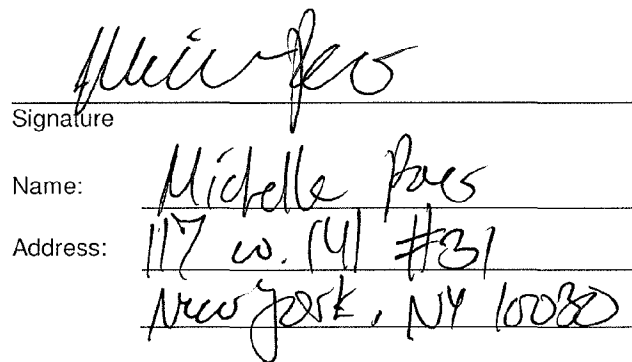 Signature
Name: Michelle
Address: 117 W. 141 #31
New York, NY 10030